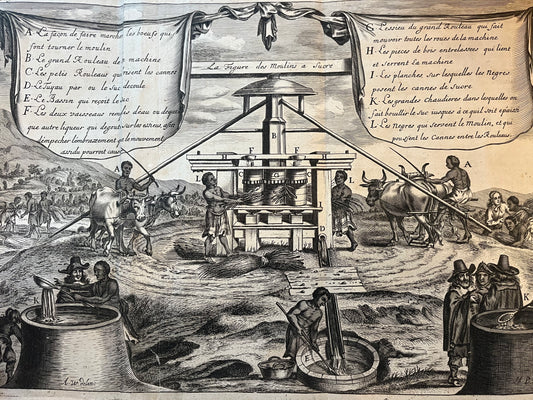 A. La façon de faire marcher les boeufs qui
font tourner le moulin
B. Le grand Rouleau de machine
C. Les petis Rouleaux qui pressent les cannes
D. Le Tuyau par ou le suc decoule
E. Le Bassin qui reçoit le
F. Les deux vaisseaux remplis deau ou de
que autre liqueur qui degoute sur les
empescher lembrazement le mouvement
assidu pourroit
La Figure des Moulins a Sucre
G. Lessieu du grand Rouleau qui fait
mouvoir toutes les roues de la machine
H. Les pieces de bois entrelassees qui lient
et serrent la machine
I. Les planches sur lesquelles les Negres
posent les cannes de sucre
K. Les grandes chaudieres dans lesquelles on
fait bouillir le suc jusques à ce quil soit épaissi
L. Les Negres qui servent le Moulin, et qui
poussent les Cannes entre les Rouleaux.
B
F F
C C
G
L
A
D
K
K
E